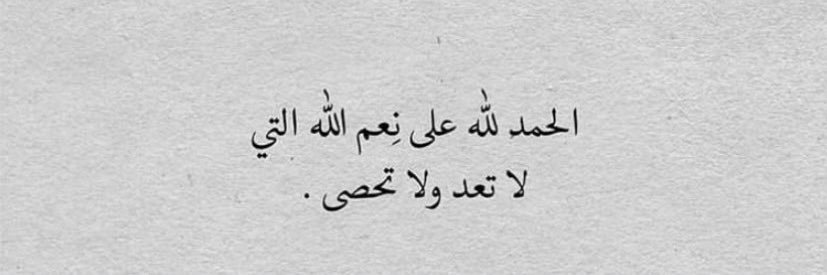 الحمد لله على نِعم الله التي
لا تعد ولا تحصى .